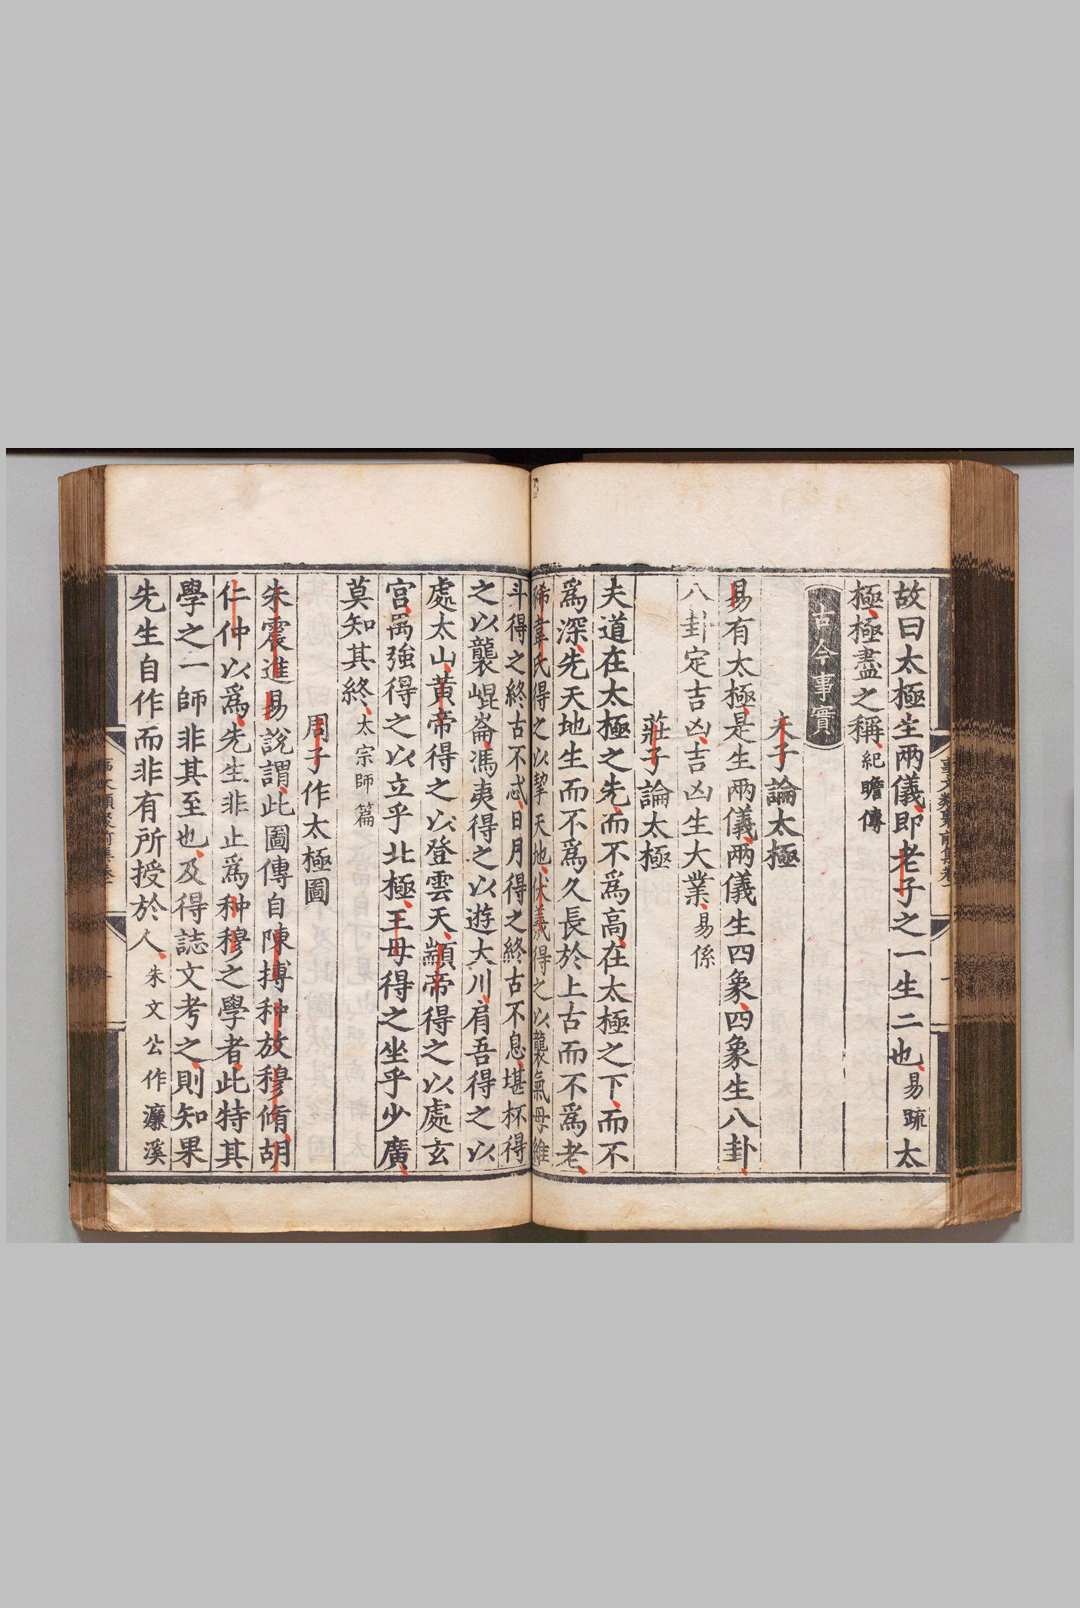 故曰太極生兩儀即老子之一生二也易䟽太
極極盡之稱紀瞻傳
古今事實
夫子論太極
易有太極是生兩儀兩儀生四象四象生八卦
八卦定吉凶吉凶生大業易係
莊子論太極
夫道在太極之先而不爲高在太極之下而不
爲深先天地生而不爲久長於上古而不爲老
狶韋氏得之以挈天地伏羲得之以襲氣母維
斗得之終古不忒日月得之終古不息堪杯得
之以襲崐崙馮夷得之以遊大川肩吾得之以
處太山黃帝得之以登雲天顓帝得之以處玄
宮禺強得之以立乎北極王母得之坐乎少廣
莫知其終太宗師篇
周子作太極圖
朱震進易說謂此圖傳自陳摶种放穆脩胡
仁仲以爲先生非止爲种穆之學者此特其
學之一師非其至也及得誌文考之則知果
先生自作而非有所授於人朱文公作濂溪